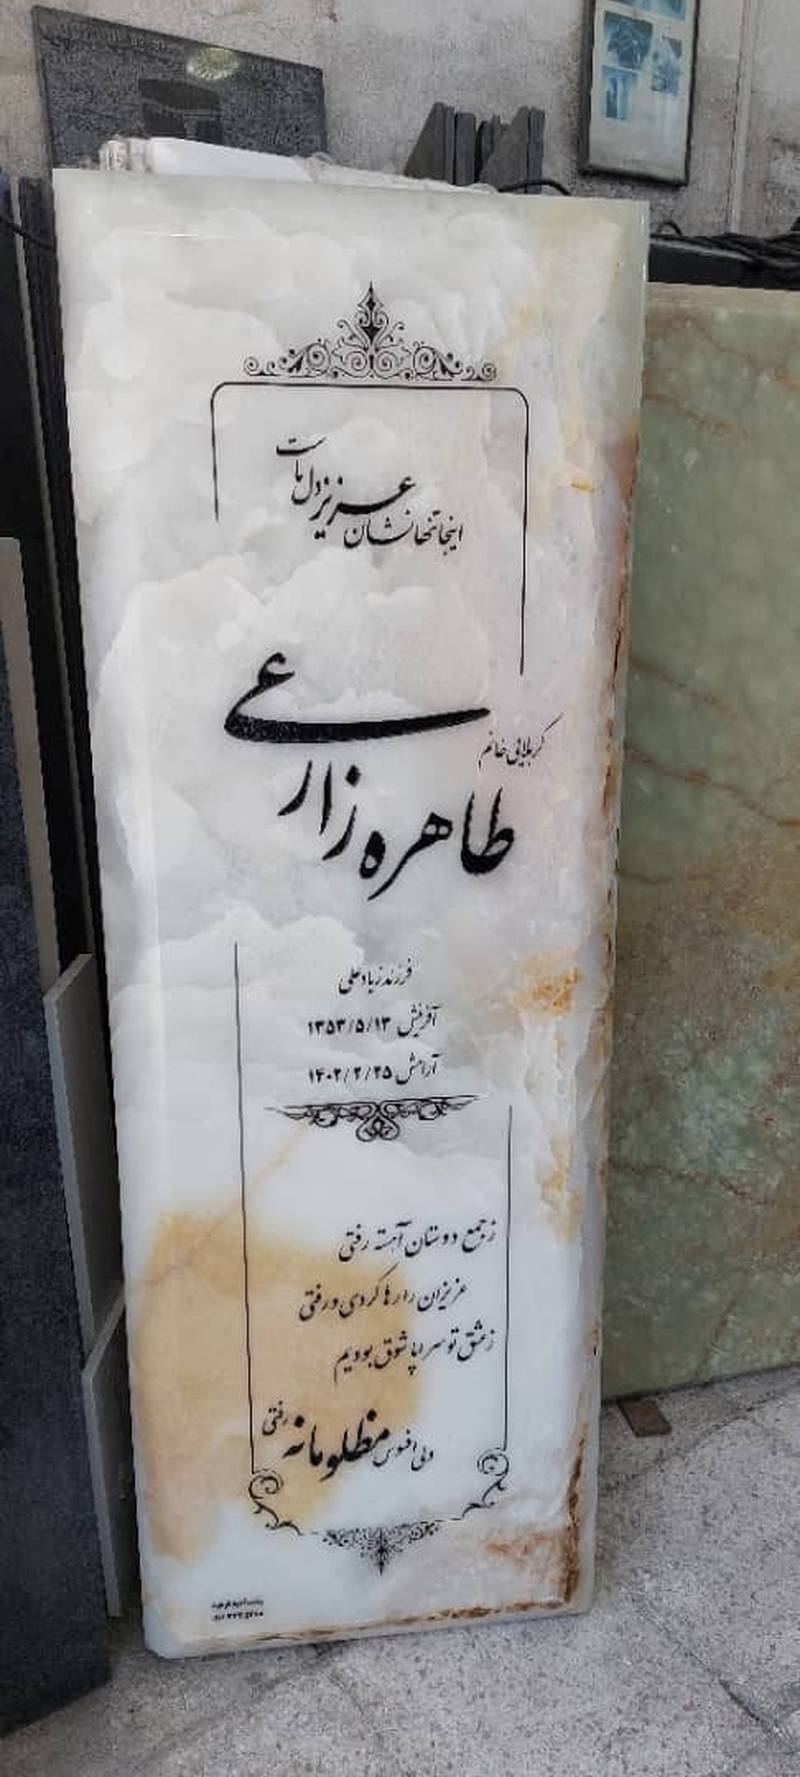 اینجا تنها نشان
عزیز دل ماست
کربلائی خانم
طاهره زارعی
فرزند زیادعلی
آفرینش ۱۳۵۳/۵/۱۳
آرامش ۱۴۰۲/۲/۲۵
ز جمع دوستان آهسته رفتی
عزیزان را رها کردی و رفتی
ز عشق تو سراپا شوق بودیم
ولی افسوس مظلومانه رفتی